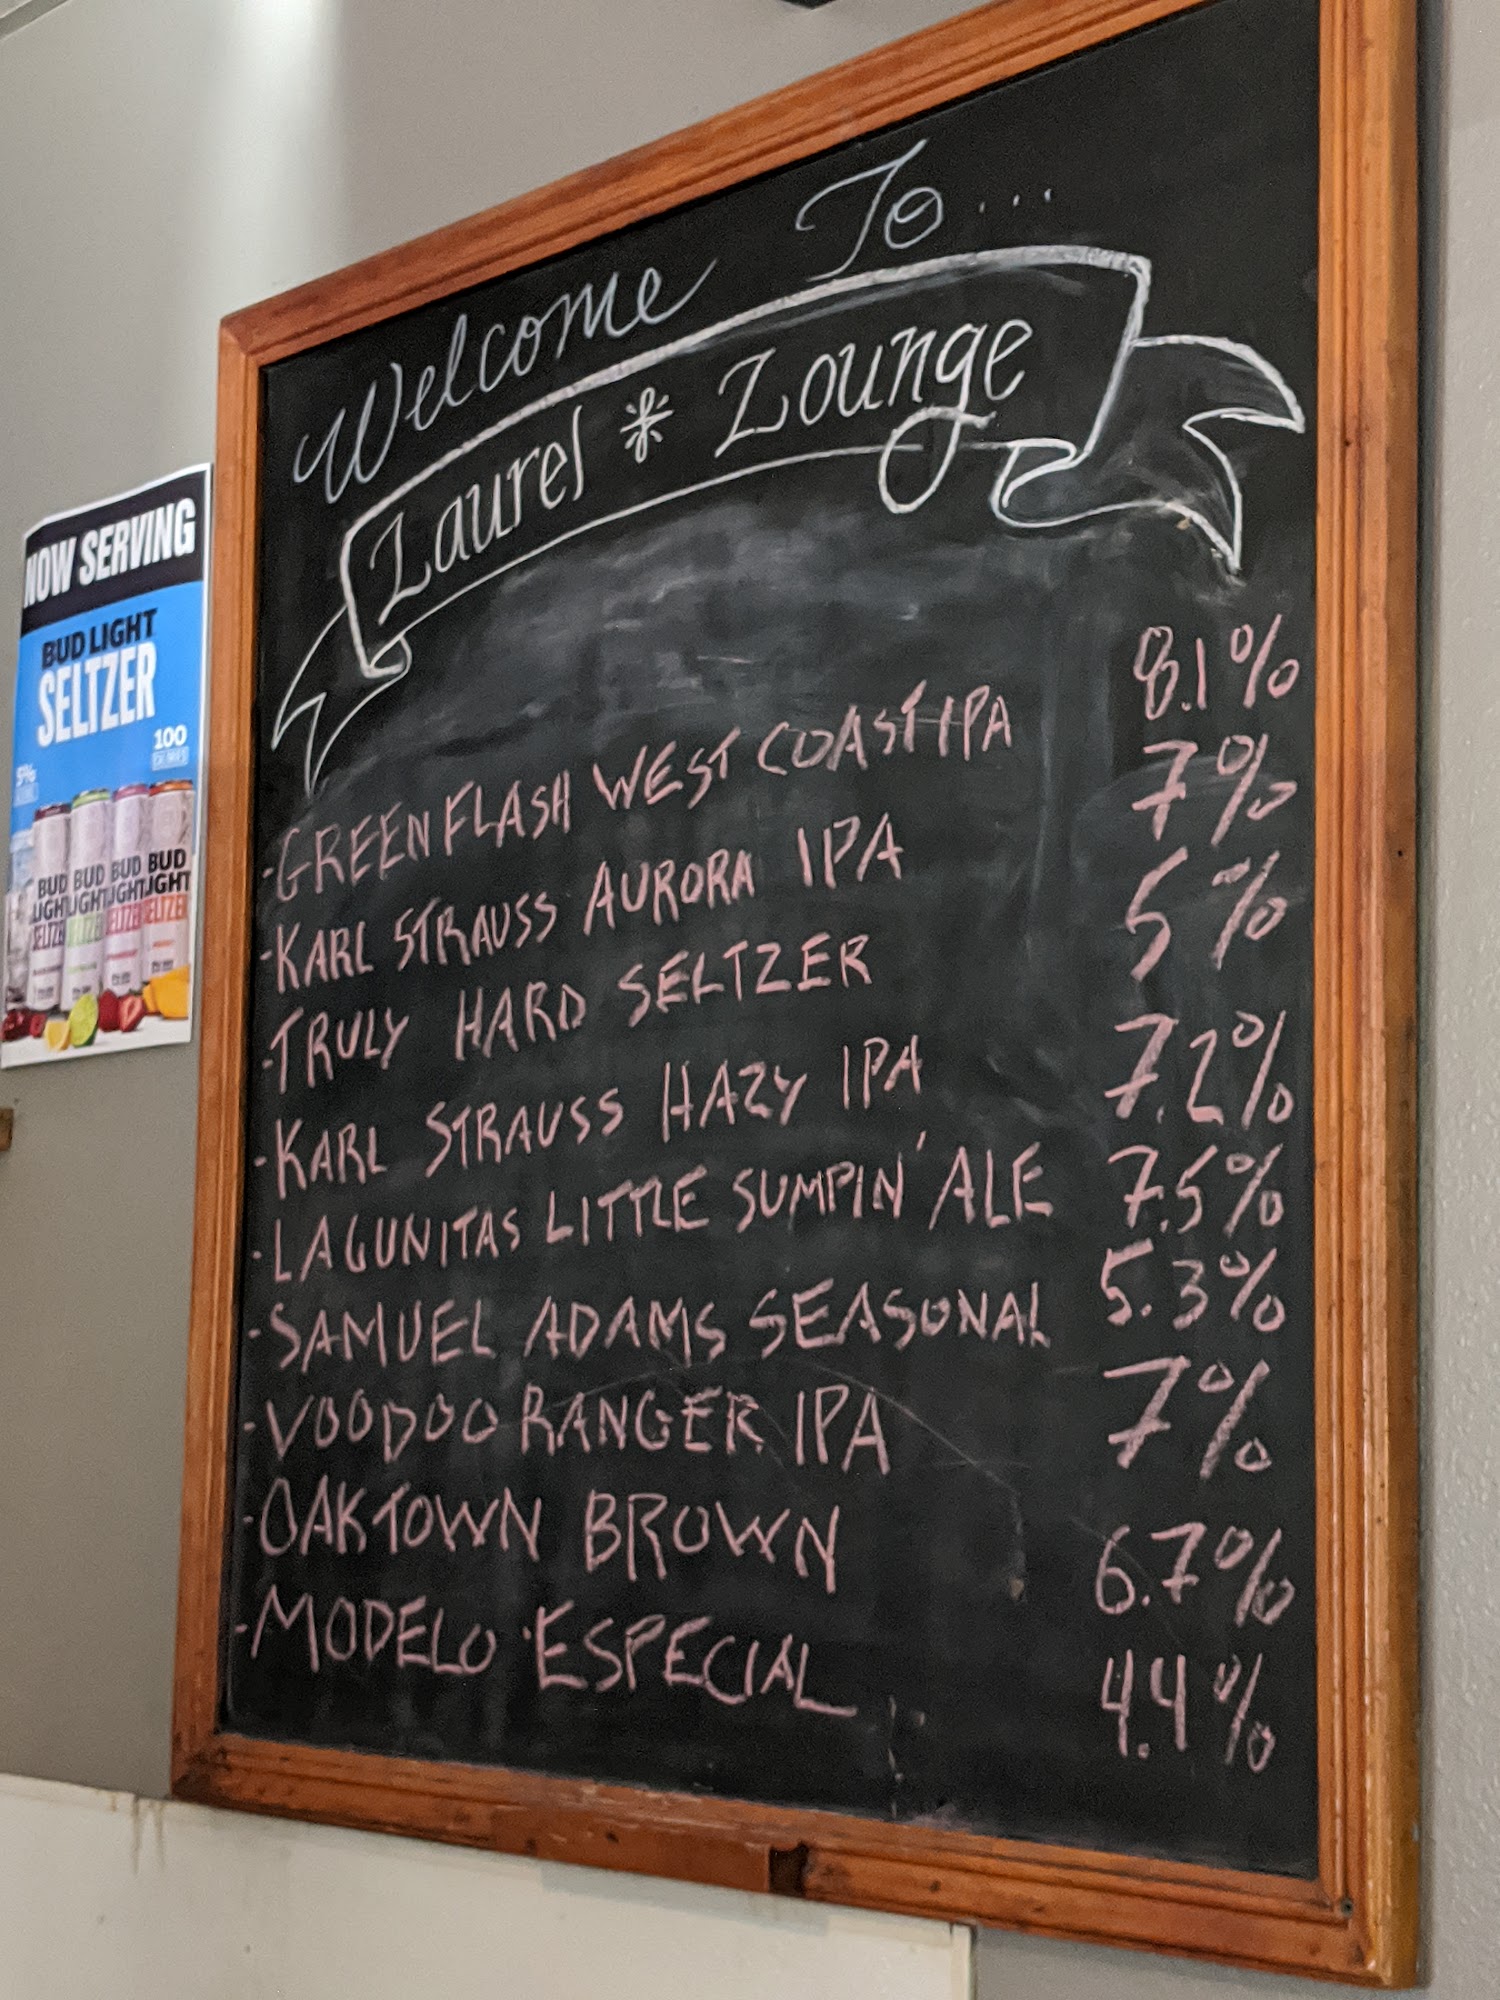 Welcome To...
Laurel * Lounge
-GREEN FLASH WEST COAST IPA 8.1%
-KARL STRAUSS AURORA IPA 7%
-TRULY HARD SELTZER 5%
-KARL STRAUSS HAZY IPA 7.2%
-LAGUNITAS LITTLE SUMPIN' ALE 7.5%
-SAMUEL ADAMS SEASONAL 5.3%
-VOODOO RANGER IPA 7%
-OAKTOWN BROWN 6.7%
-MODELO ESPECIAL 4.4%
NOW SERVING
BUD LIGHT
SELTZER
100
5%
BUD BUD BUD BUD
LIGHT LIGHT LIGHT LIGHT
SELTZER SELTZER SELTZER SELTZER